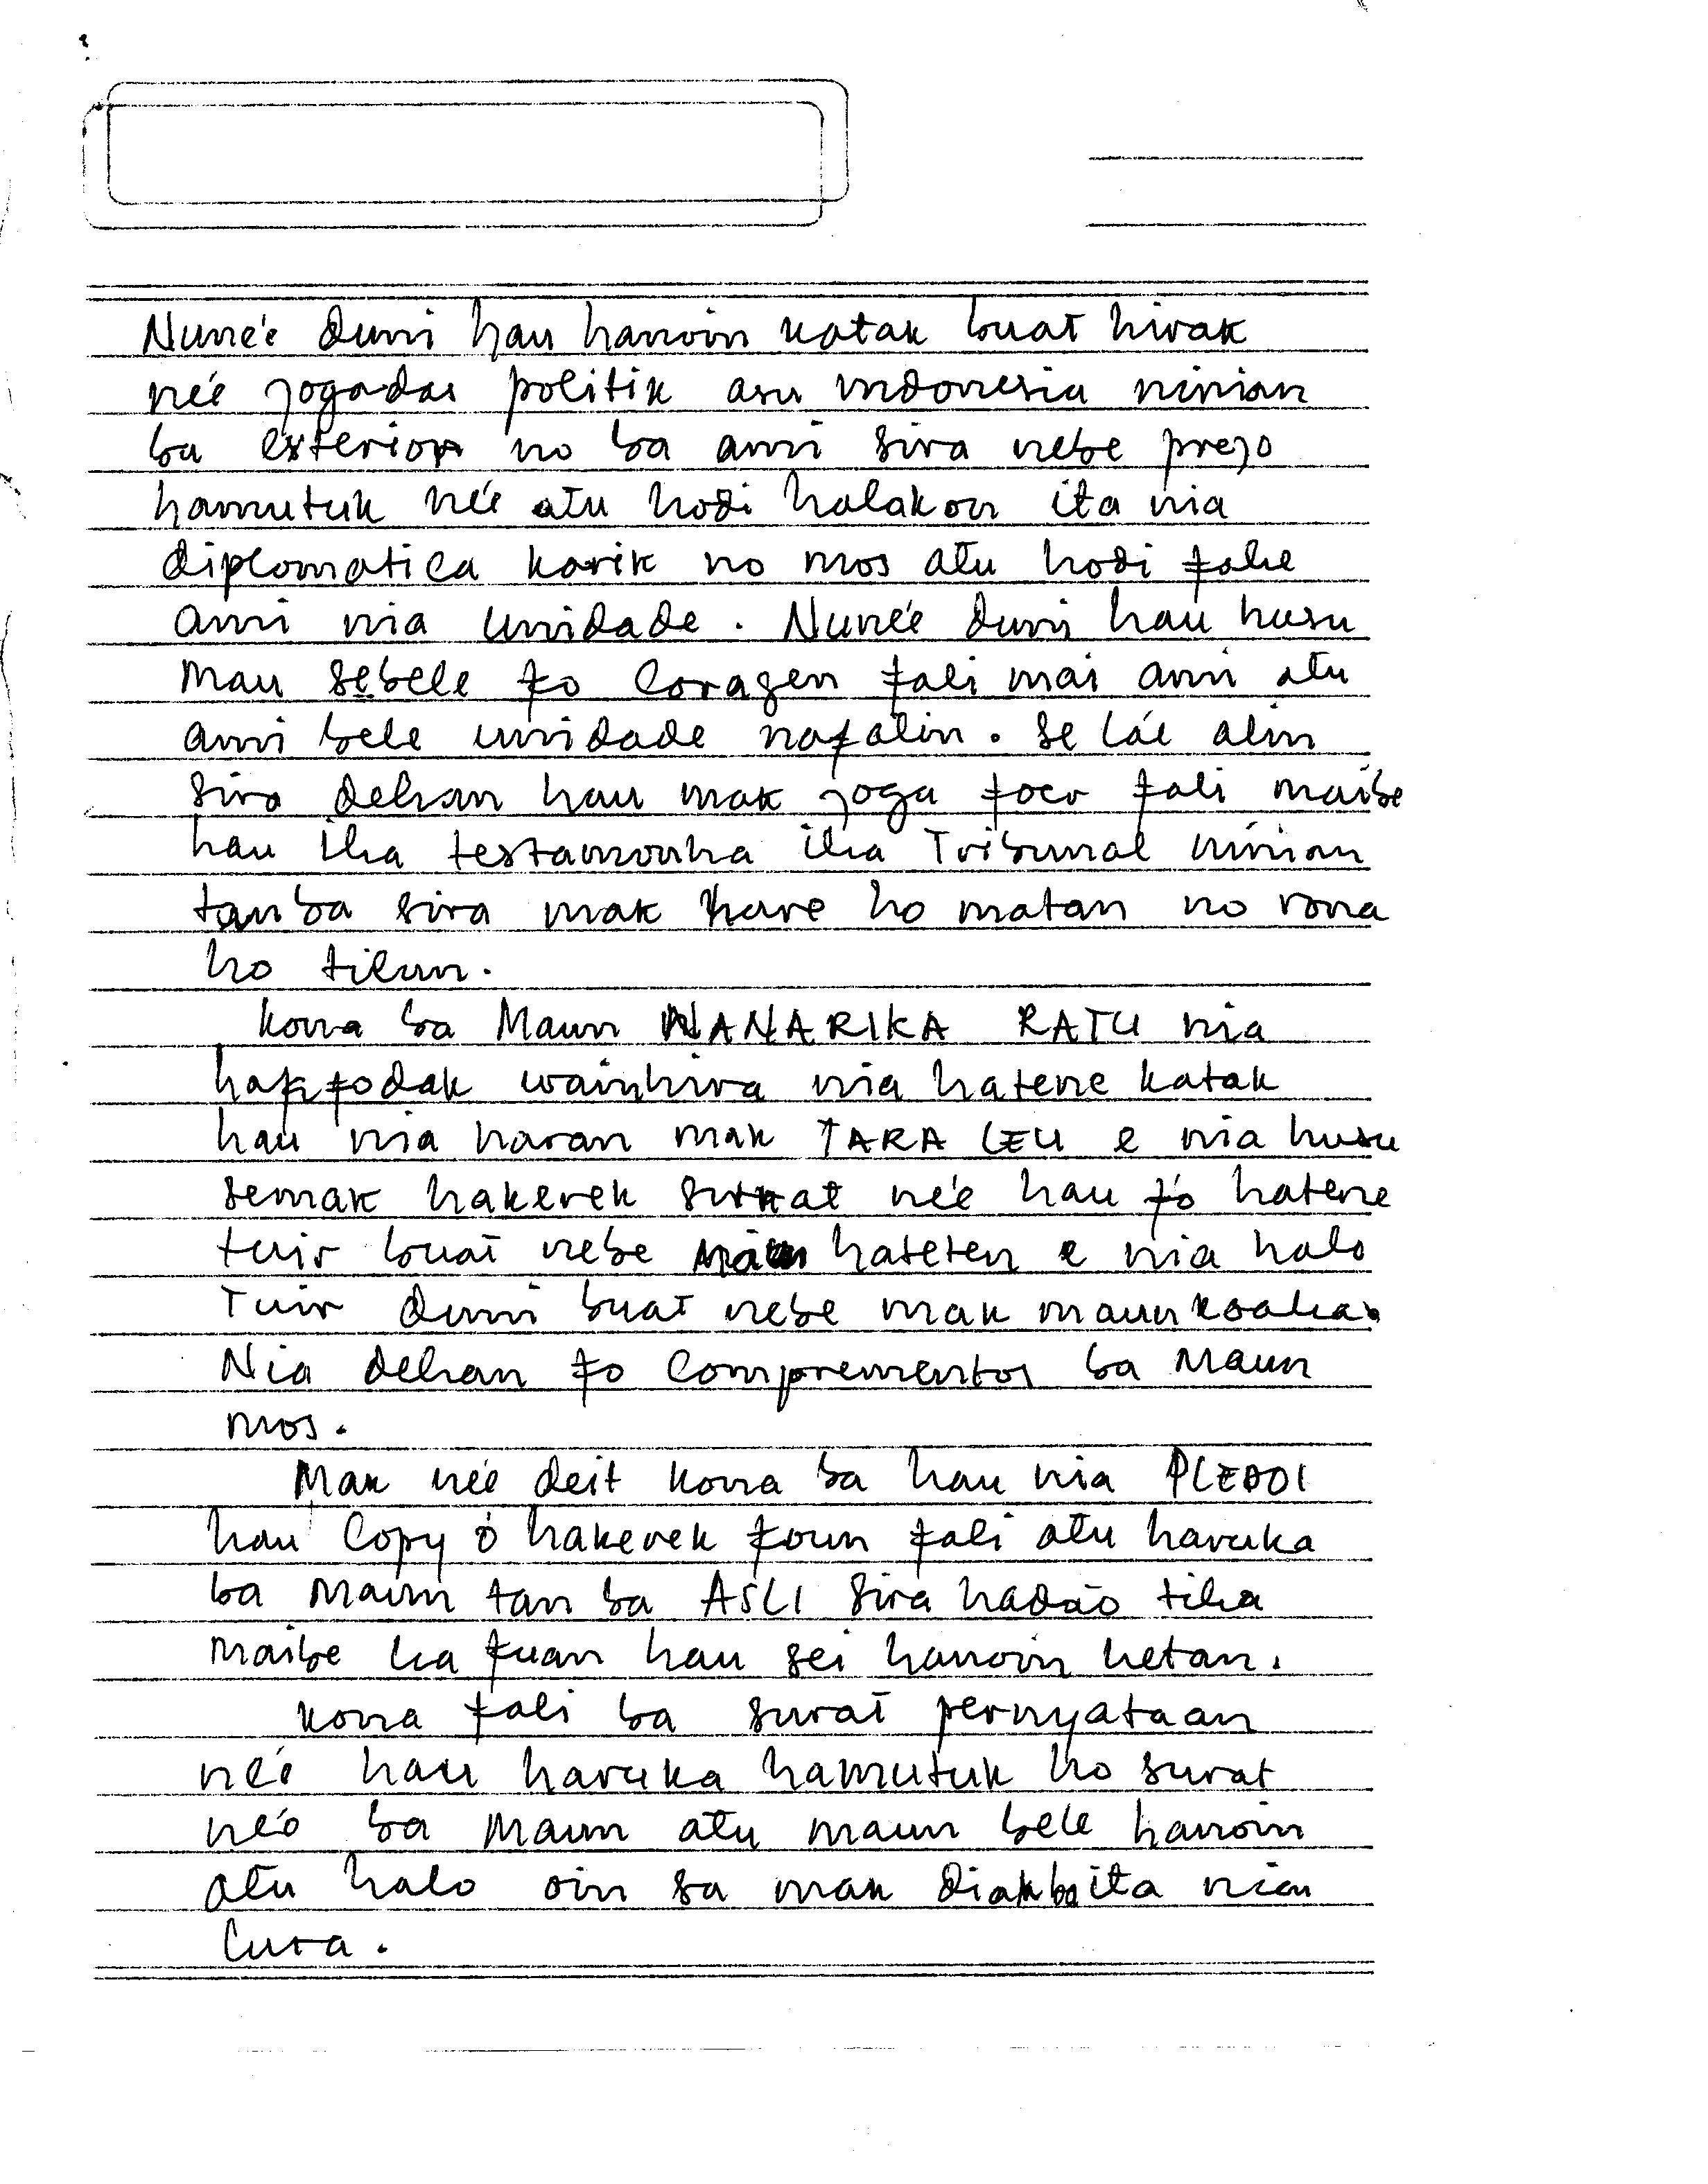 Nune'e duni hau hanoin katak buat hirak
ne'e jogadas politik asu indonesia ninian
ba exterior no ba ami sira nebe prezo
hamutuk ne'e atu hodi halakon ita nia
diplomatica karik no mos atu hodi fahe
ami nia unidade. Nune'e duni hau husu
mau sebele fo coragen fali mai ami atu
ami bele unidade nafalin. Se lá'e alin
sira dehan hau mak joga foer fali maibe
hau iha testamonha iha Tribunal ninian
tan ba sira mak hare ho matan no rona
ho tilun.
Kona ba Maun WANARIKA RATU nia
hakfodak wainhira nia hatene katak
hau nia naran mak TARA LEU e nia husu
semak hakerek surat ne'e hau fó hatene
tuir buat nebe hateten e nia halo
Tuir duni buat nebe mak maun koalia.
Nia dehan fo comprementos ba Maun
mos.
Mak ne'e deit kona ba hau nia PLEDOI
hau copy ó hakerek foun fali atu haruka
ba Maun tan ba ASLI sira hadáo tiha
maibe lia fuan hau sei hanoin hetan.
Kona fali ba surat pernyataan
ne'e hau haruka hamutuk ho surat
ne'o ba Maun atu maun bele hanoin
atu halo oin sa mak diak ba ita nian
luta.